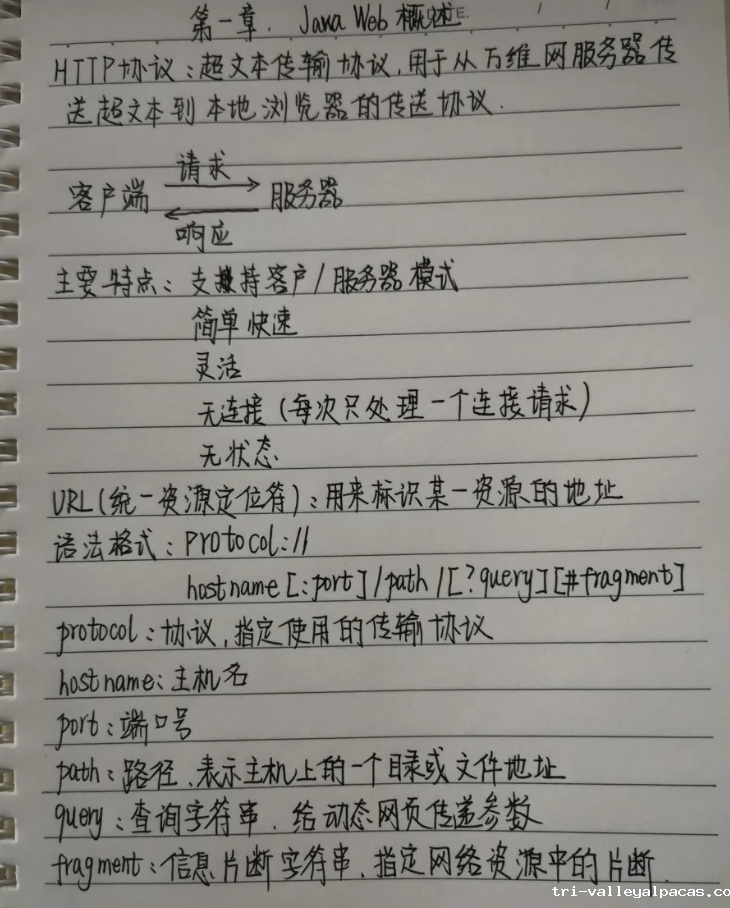 第一章. Java Web 概述
HTTP协议:超文本传输协议,用于从万维网服务器传
送超文本到本地浏览器的传送协议.
请求
客户端 服务器
响应
主要特点: 支持客户/服务器模式
简单快速
灵活
无连接(每次只处理一个连接请求)
无状态
URL(统一资源定位符):用来标识某一资源的地址
语法格式:protocol://
hostname[:port]/path/[?query][#fragment]
protocol:协议,指定使用的传输协议
hostname:主机名
port:端口号
path:路径,表示主机上的一个目录或文件地址
query:查询字符串,给动态网页传递参数
fragment:信息片断字符串,指定网络资源中的片断.
tri-valleyalpacas.co